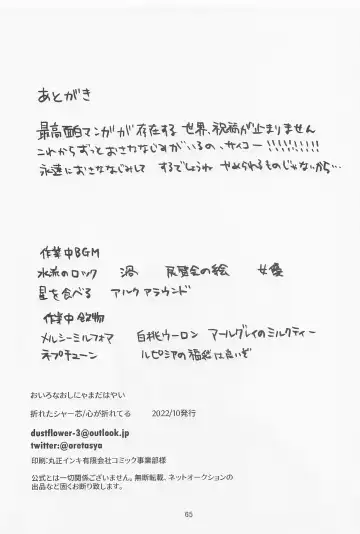 あとがき
最高面白マンガが存在する世界、祝福が止まりません
これからずっとおさななじみがいるの、サイコー!!!!!!!!!
永遠におさななじみして するでしょうね やめられるものじゃないから…
作業中BGM
水流のロック 渦 反省会の絵 女優
星を食べる アルクアラウンド
作業中飲物
メルシーミルフォマ 白桃ウーロン アールグレイのミルクティー
ネプチューン ルピシアの福袋は良いぞ
おいろなおしにゃまだはやい
折れたシャー芯/心が折れてる 2022/10発行
dustflower-3@outlook.jp
twitter:@oretasya
印刷:丸正インキ有限会社コミック事業部様
公式とは一切関係ございません。無断転載、ネットオークションの
出品など固くお断り致します。
65